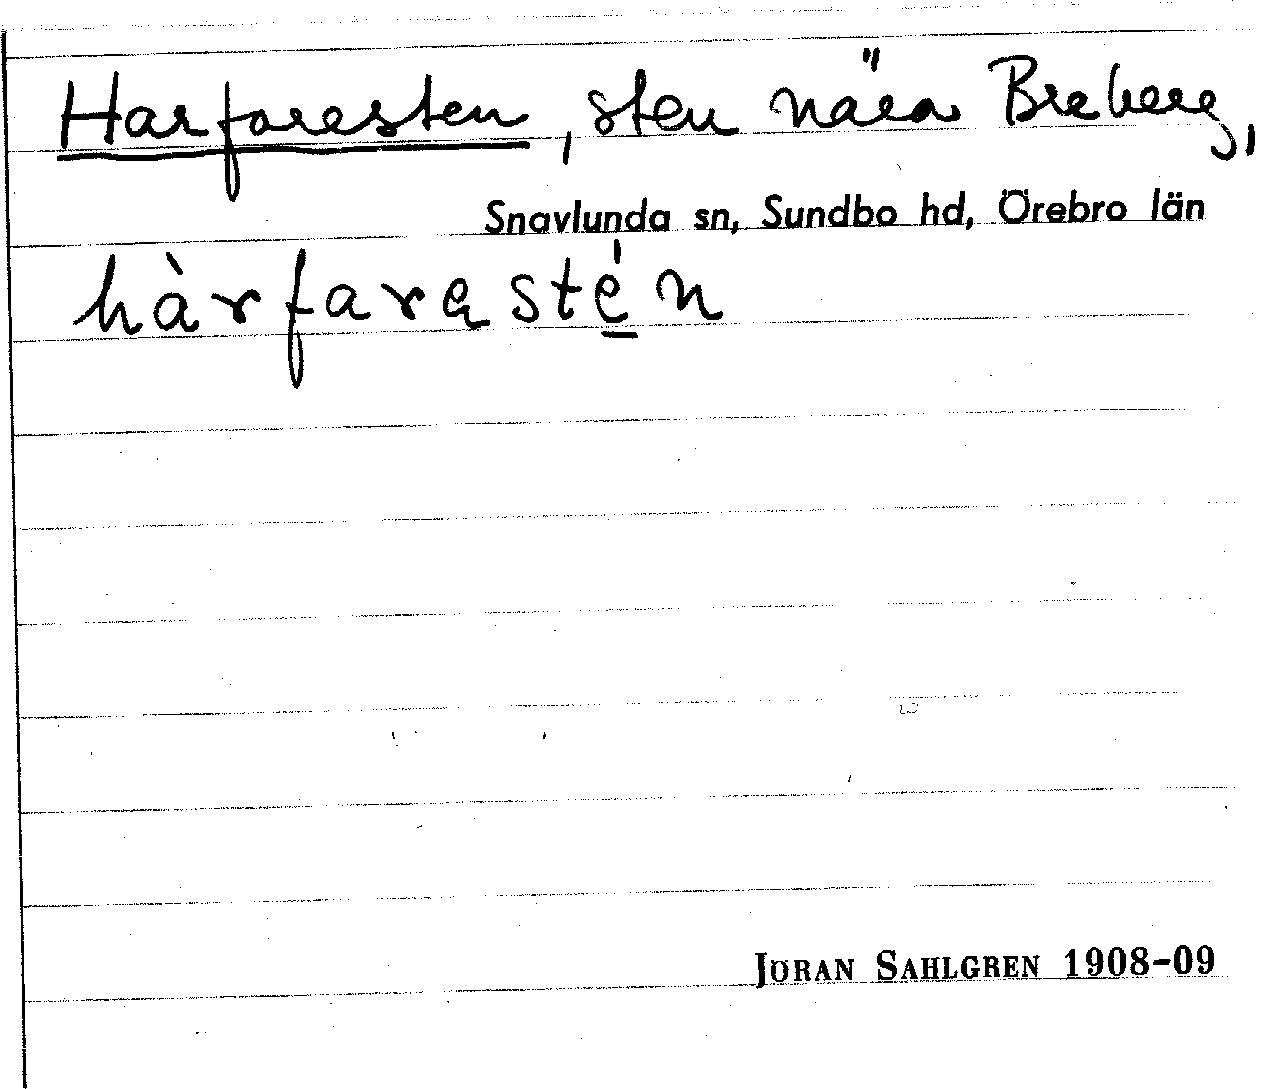 Harfaresten, sten nära Breberg,
Snavlunda sn, Sundbo hd, Örebro län
hàrfarasté̱n
JÖRAN SAHLGREN 1908-09